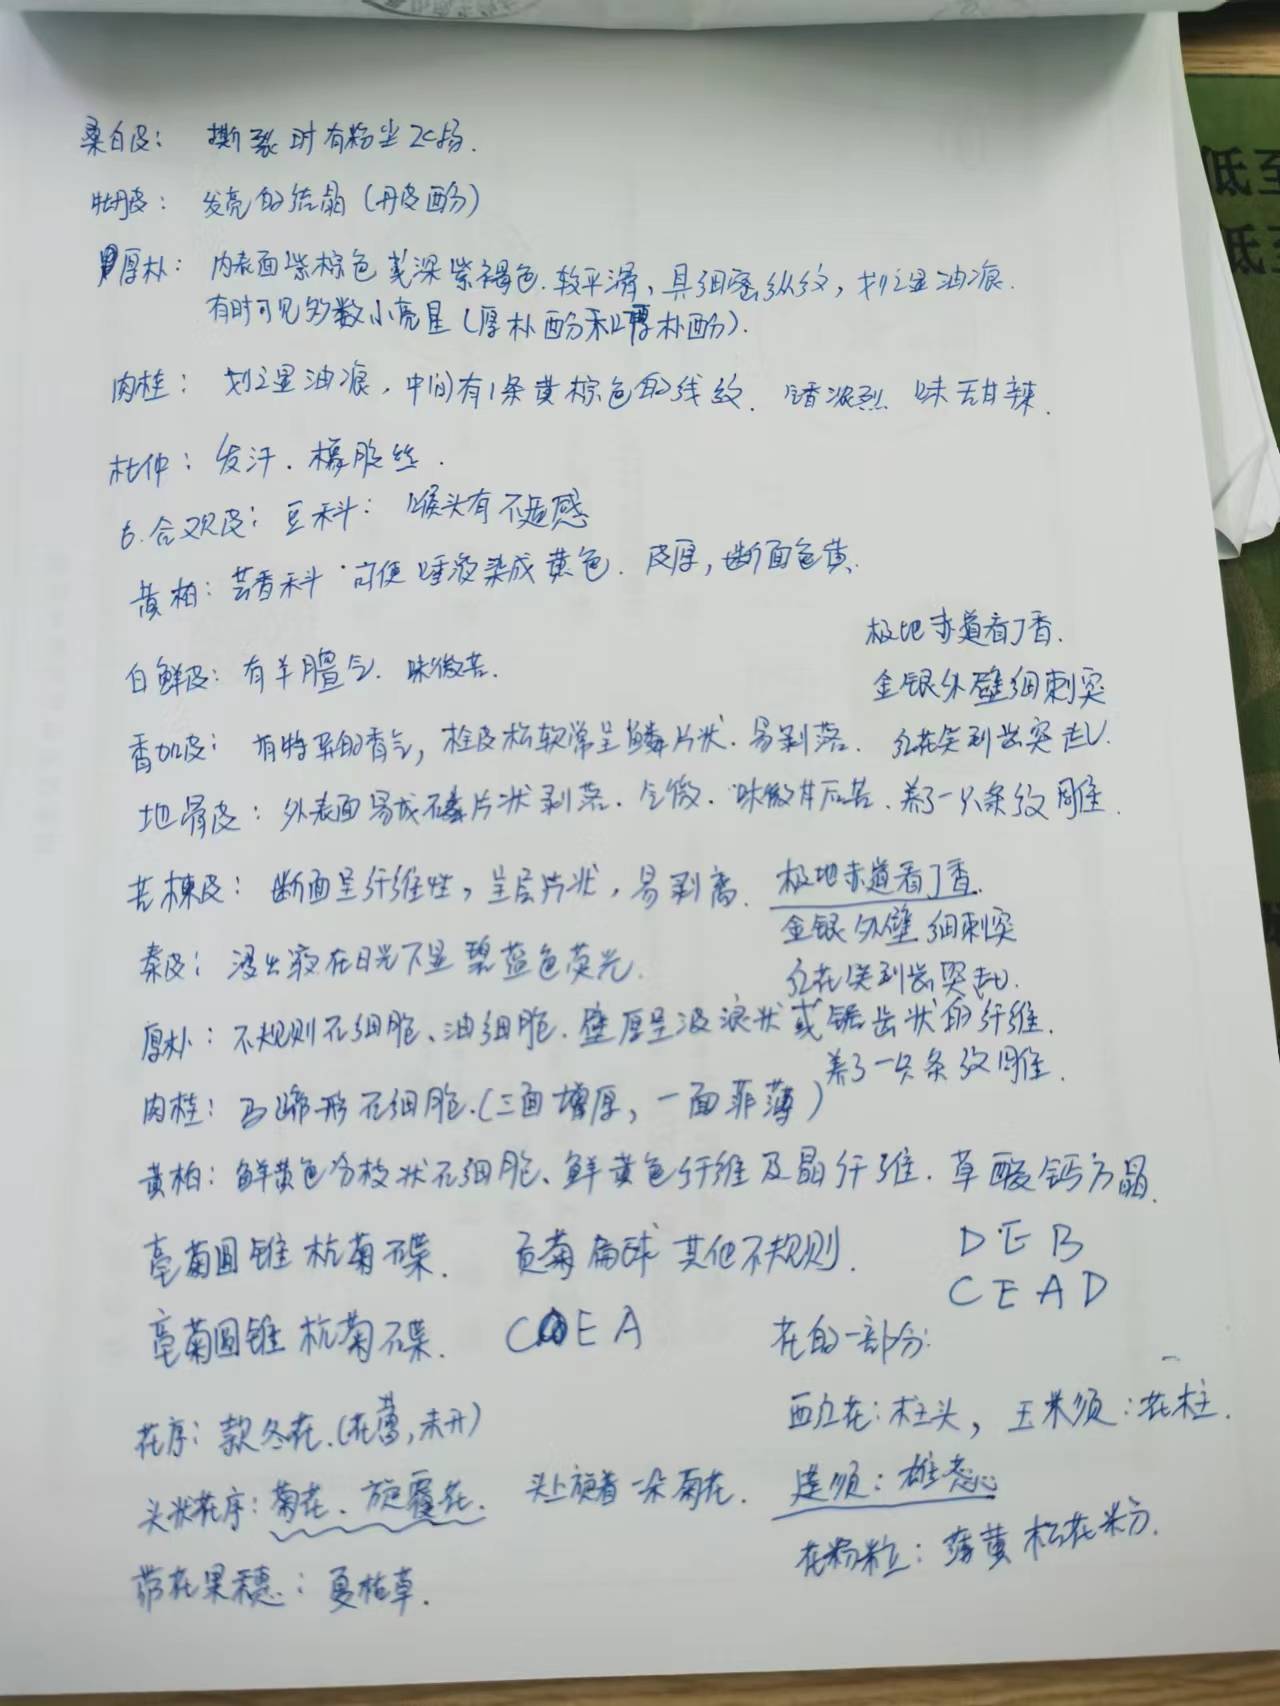 桑白皮：撕裂时有粉尘飞扬.
牡丹皮：发亮的结晶(丹皮酚)
厚朴：内表面紫棕色或深紫褐色.较平滑,具细密纵纹,划之显油痕.
有时可见多数小亮星(厚朴酚和厚朴酚).
肉桂：划之显油痕,中间有1条黄棕色的线纹. 香浓烈 味甜辣.
杜仲：发汗.橡胶丝.
6.合欢皮：豆科：喉头有不适感
黄柏：芸香科·可使唾液染成黄色.皮厚,断面色黄.
极地赤道看丁香.
白鲜皮：有羊膻气.味微苦.
金银外壁细刺突
香加皮：有特异的香气,栓皮松软常呈鳞片状.易剥落.
红花类刺齿突起.
地骨皮：外表面易成鳞片状剥落.气微.味微甘后苦.
养了一只条纹雕.
苦楝皮：断面呈纤维性,呈层片状,易剥离.
极地赤道看丁香.
金银外壁细刺突
秦皮：浸出液在日光下显碧蓝色荧光.
红花类刺齿突起.
厚朴：不规则石细胞、油细胞.壁厚呈波浪状或锯齿状的纤维.
养了一只条纹雕.
肉桂：马蹄形石细胞.(三面增厚,一面菲薄)
黄柏：鲜黄色分枝状石细胞、鲜黄色纤维及晶纤维.草酸钙方晶.
亳菊圆锥 杭菊碟. 贡菊扁球 其他不规则. D E B
C E A D
亳菊圆锥 杭菊碟. C E A
花的一部分:
花序：款冬花.(花蕾,未开)
西红花:柱头, 玉米须:花柱.
头状花序：菊花、旋覆花. 头上旋着一朵菊花.
莲须：雄蕊
带花果穗：夏枯草.
花粉粒：蒲黄 松花粉.